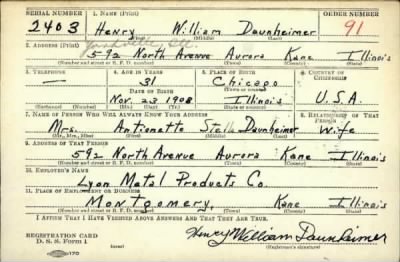 SERIAL NUMBER 1. NAME (Print) ORDER NUMBER
2403 Henry William Daunheimer 91
(First) (Middle) (Last)
2. ADDRESS (Print) Yorkville, Ill.
592 North Avenue Aurora Kane Illinois
(Number and street or R. F. D. number) (Town) (County) (State)
3. TELEPHONE 4. AGE IN YEARS 5. PLACE OF BIRTH 6. COUNTRY OF CITIZENSHIP
— 31 Chicago
DATE OF BIRTH (Town or county)
Nov. 23 1908 Illinois U.S.A.
(Mo.) (Day) (Yr.) (State or country)
7. NAME OF PERSON WHO WILL ALWAYS KNOW YOUR ADDRESS 8. RELATIONSHIP OF THAT PERSON
Mrs. Antionette Stella Daunheimer Wife
(Mr., Mrs., Miss) (First) (Middle) (Last)
9. ADDRESS OF THAT PERSON
592 North Avenue Aurora Kane Illinois
(Number and street or R. F. D. number) (Town) (County) (State)
10. EMPLOYER'S NAME
Lyon Metal Products Co.
11. PLACE OF EMPLOYMENT OR BUSINESS
Montgomery, Kane Illinois
(Number and street or R. F. D. number) (Town) (County) (State)
I AFFIRM THAT I HAVE VERIFIED ABOVE ANSWERS AND THAT THEY ARE TRUE.
REGISTRATION CARD
D. S. S. Form 1 (over) Henry William Daunheimer
(Registrant's signature)